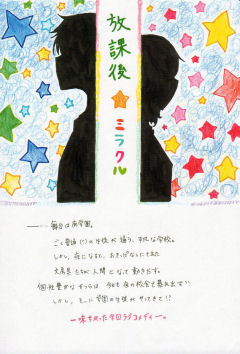 放課後
★
ミラクル
舞台は南学園。
ごく普通(?)の生徒が通う、平凡な学校。
しかし、夜になると、なんと
文房具たちが人間になって動き出す。
個性豊かなそつらは 今日も夜の校舎で暴れ出す!!
しかし、そこに学園の生徒がやってきて!?
一味ちがった学園ラブコメディー。